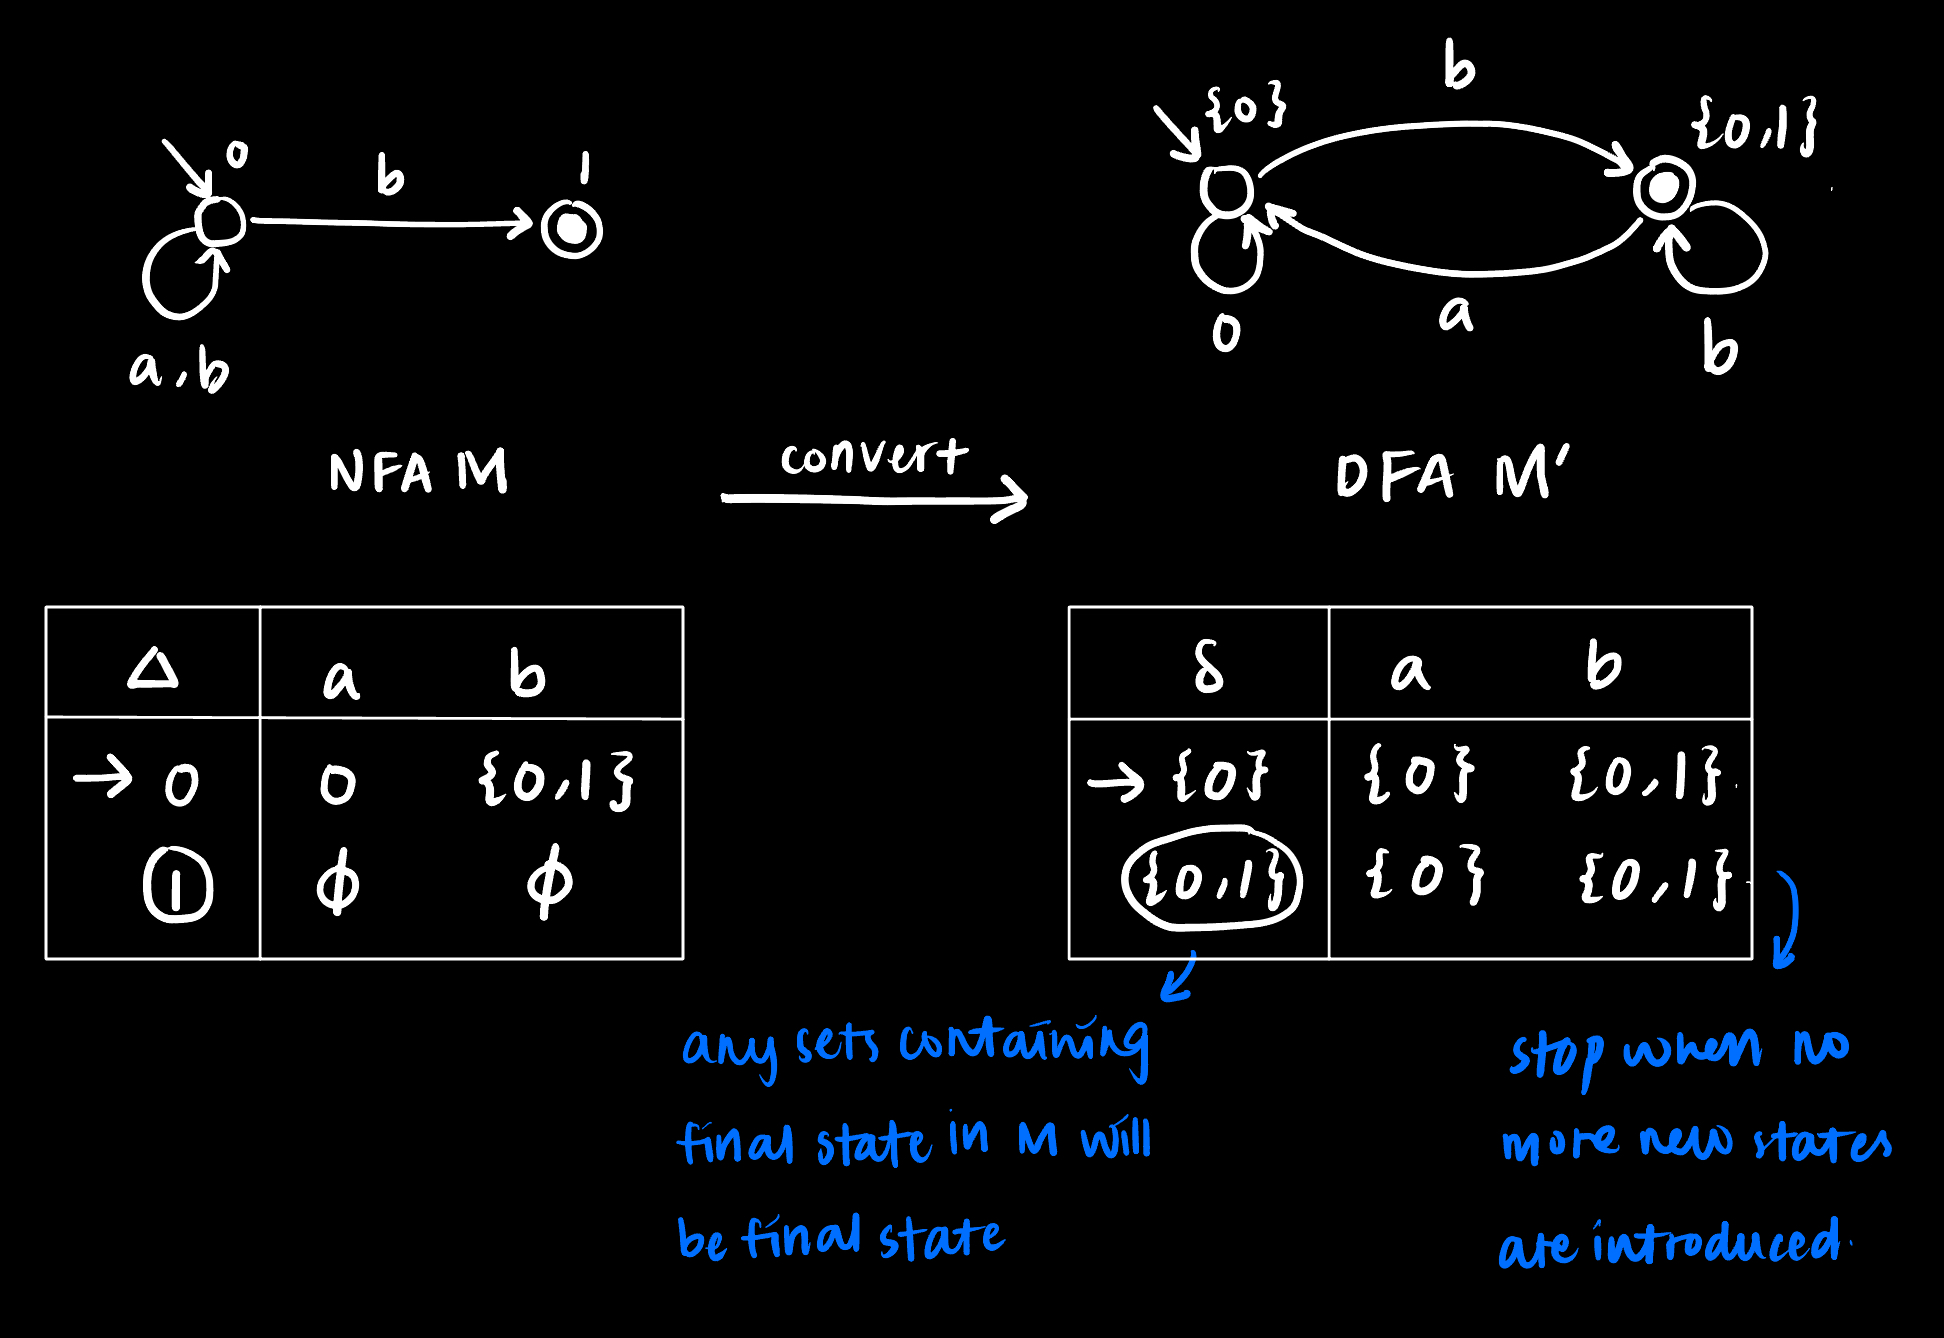 0 b 1
a,b
{0} b {0,1}
0 a b
NFA M convert DFA M'
Δ a b
→ 0 0 {0,1}
1 ϕ ϕ
δ a b
→ {0} {0} {0,1}
{0,1} {0} {0,1}
any sets containing
final state in M will
be final state
stop when no
more new states
are introduced.